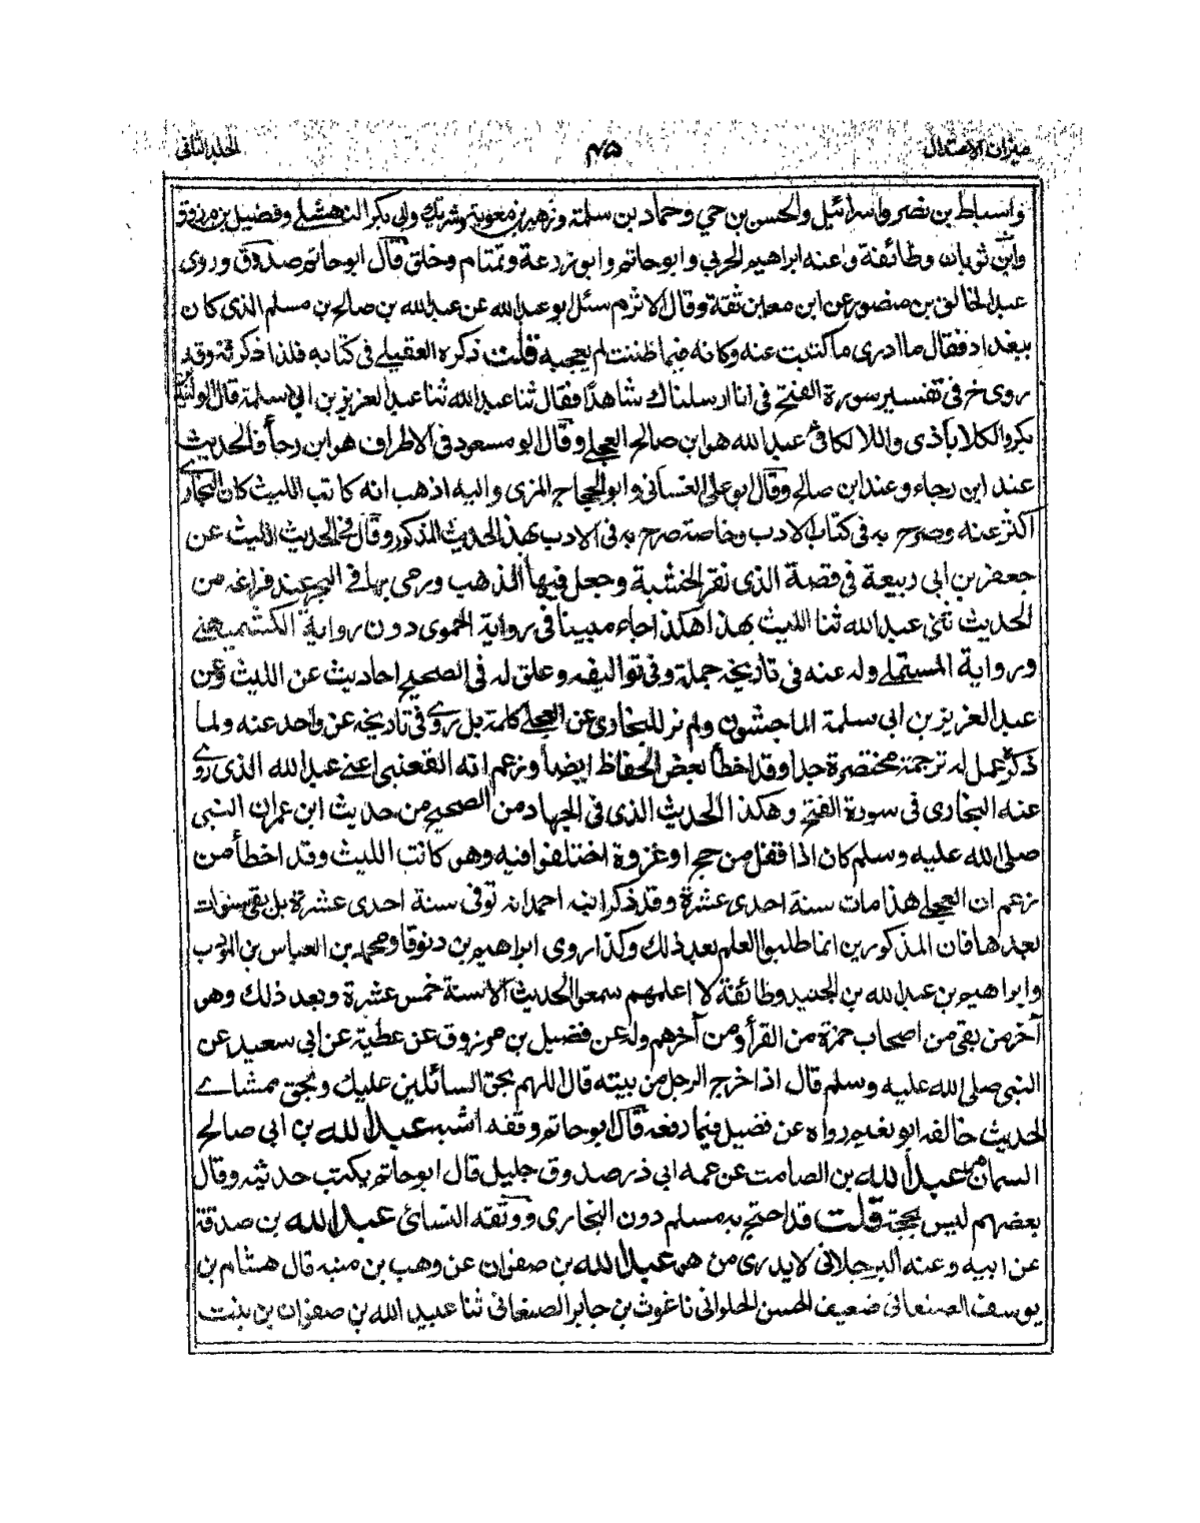 ميزان الاعتدال ٤٥ الجلد الثانى
واسباط بن نصر واسرائيل والحسن بن حي وحماد بن سلمة وزهير بن معوية وشريك وابي بكر النهشلے وفضيل بن مرزوق
وابن ثوبان وطائفة وعنه ابراهيم الحربي وابوحاتم وابوزرعة وتمتام وخلق قال ابوحاتم صدوق وروى
عبدالخالق بن منصور عن ابن معين ثقة وقال الاثرم سئل ابو عبدالله عن عبدالله بن صالح بن مسلم الذى كان
ببغداد فقال ما ادرى ما كتبت عنه وكانه فيما ظننت لم يعجبه قلت ذكره العقيلے فى كتابه فلذا ذكرته وقد
روى خ فى تفسير سورة الفتح فى انا ارسلناك شاهدا فقال ثنا عبدالله ثنا عبدالعزيز بن ابي سلمة قال ابو
بكر والكلاباذى واللالكائى عبدالله هو ابن صالح العجلے وقال ابو مسعود فى الاطراف هو ابن رجأ فالحديث
عند ابن رجاء وعند ابن صالح وقال ابوعلى الغسانى وابوالحجاج المزى واليه اذهب انه كاتب الليث كان البخارى
اكثر عنه وصرح به فى كتاب الادب وخاصة صرح به فى الادب بهذا الحديث المذكور وقال فى الحديث الليث عن
جعفر بن ابى ربيعة فى قصة الذى نقر الخشبة وجعل فيها الذهب ورمى بها فى البحر عند فراغه من
الحديث ثنى عبدالله ثنا الليث بهذا هكذا جاء مبينا فى رواية الحموى دون رواية الكشميهنے
ورواية المستملے وله عنه فى تاريخه جملة وفى تواليفه وعلق له فى الصحيح احاديث عن الليث وعن
عبدالعزيز بن ابى سلمة الماجشون ولم نر للبخارى عن العجلے كلمة بل روى فى تاريخه عن واحد عنه ولما
ذكره عمل له ترجمة مختصرة جدا وقد اخطأ بعض الحفاظ ايضا وزعم انه القعنبى اعنے عبدالله الذى روے
عنه البخارى فى سورة الفتح وهكذا الحديث الذى فى الجهاد من الصحيح من حديث ابن عمران النبى
صلى الله عليه وسلم كان اذا قفل من حج او غزوة اختلفوا فيه وهو كاتب الليث وقد اخطأ من
زعم ان العجلے هذا مات سنة احدى عشرة وقد ذكر ابنه احمد انه توفى سنة احدى عشرة بل بقى سنوات
بعدها فان المذكورين انما طلبوا العلم بعد ذلك وكذا روى ابراهيم بن دنوقا ومحمد بن العباس بن المؤدب
وابراهيم بن عبدالله بن الجنيد وطائفة لا اعلمهم سمعوا الحديث الا سنة خمس عشرة وبعد ذلك وهو
آخر من بقى من اصحاب حمزة من القرأ ومن آخرهم وله عن فضيل بن مرزوق عن عطية عن ابى سعيد عن
النبى صلى الله عليه وسلم قال اذا خرج الرجل من بيته قال اللهم بحق السائلين عليك وبحق ممشاے
الحديث خالفه ابو نعيم رواه عن فضيل فما رفعه قال ابوحاتم وقفه اشبه عبدالله بن ابى صالح
السمان عبدالله بن الصامت عن عمه ابى ذر صدوق جليل قال ابوحاتم يكتب حديثه وقال
بعضهم ليس بحجة قلت قد احتج به مسلم دون البخارى ووثقه النسائ عبدالله بن صدقة
عن ابيه وعنه البرجلانى لا يدرى من هو عبدالله بن صفوان عن وهب بن منبه قال هشام بن
يوسف الصنعانى ضعيف الحسن الحلوانى نا غوث بن جابر الصنعانى ثنا عبيد الله بن صفوان بن بنت